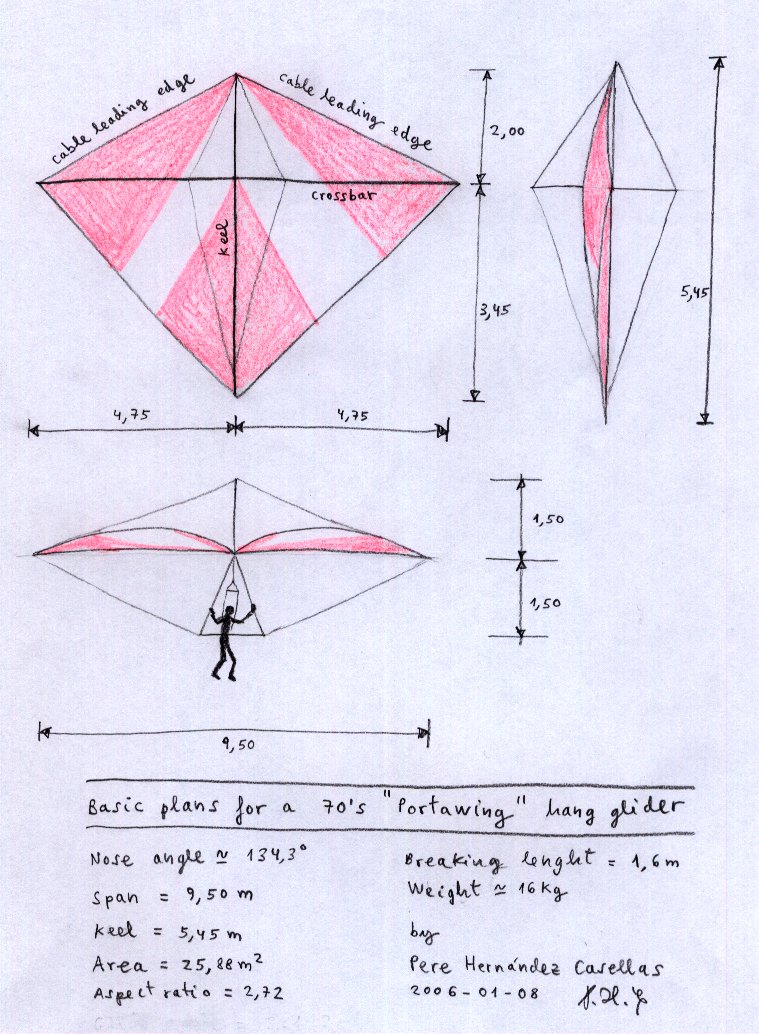 cable leading edge
cable leading edge
2,00
crossbar
keel
3,45
5,45
4,75
4,75
1,50
1,50
9,50
Basic plans for a 70's "Portawing" hang glider
Nose angle ≃ 134,3°
Span = 9,50 m
Keel = 5,45 m
Area = 25,88 m²
Aspect ratio = 2,72
Breaking lenght = 1,6 m
Weight ≃ 16 Kg
by
Pere Hernández Casellas
2006-01-08